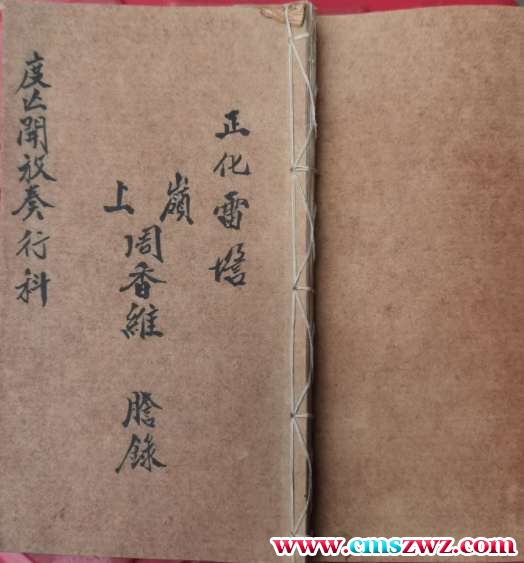 正化雷壇
嶺上
周香維 謄錄
度亾開放奏行科
www.cmszwz.com